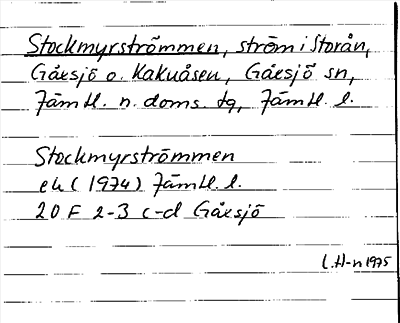 Stockmyrströmmen, ström i Storån,
Gåxsjö o. Kakuåsen, Gåxsjö sn,
Jämtl. n. doms. tg, Jämtl. l.
Stockmyrströmmen
ek (1974) Jämtl. l.
20 F 2-3 c-d Gåxsjö
L.H-n 1975